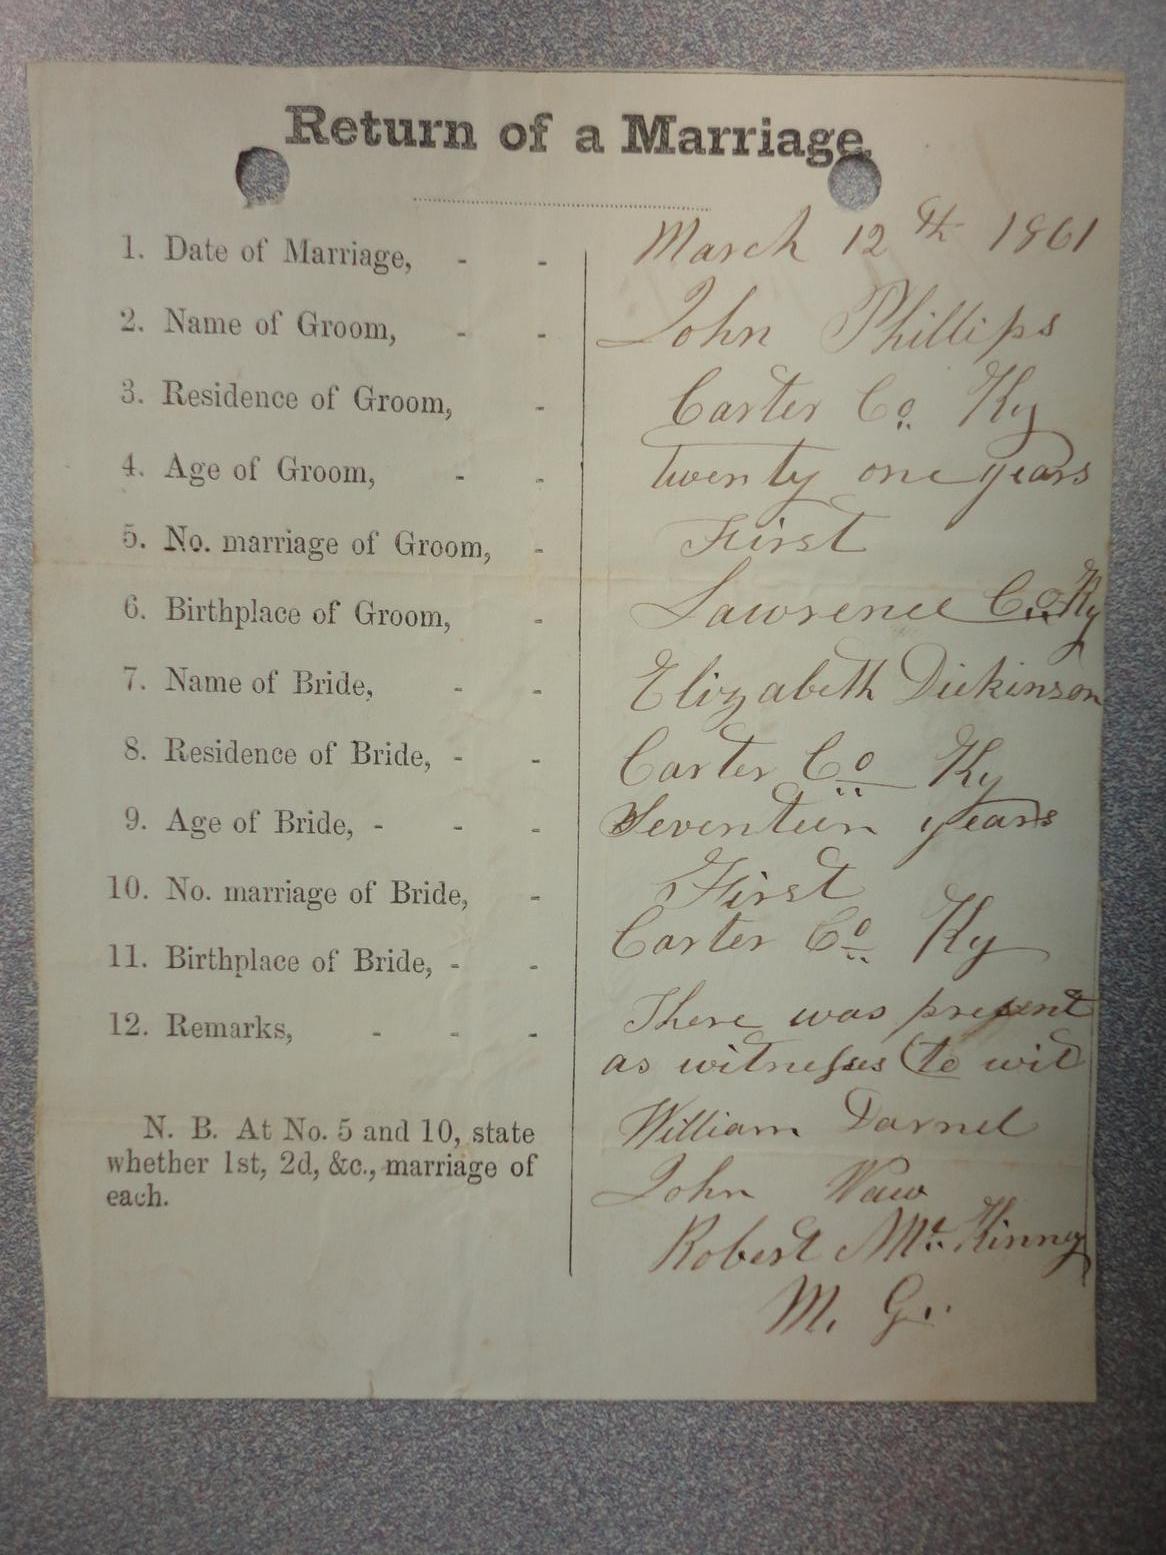 Return of a Marriage.
1. Date of Marriage, - - March 12th 1861
2. Name of Groom, - - John Phillips
3. Residence of Groom, - Carter Co. Ky
4. Age of Groom, - - twenty one years
5. No. marriage of Groom, - First
6. Birthplace of Groom, - Lawrence Co. Ky
7. Name of Bride, - - Elizabeth Dickinson
8. Residence of Bride, - - Carter Co. Ky
9. Age of Bride, - - - Seventeen years
10. No. marriage of Bride, - First
11. Birthplace of Bride, - - Carter Co. Ky
12. Remarks, - - - There was present
as witnesses to wit
William Darnel
John
Robert Mc. Kinney
M. G.
N. B. At No. 5 and 10, state
whether 1st, 2d, &c., marriage of
each.